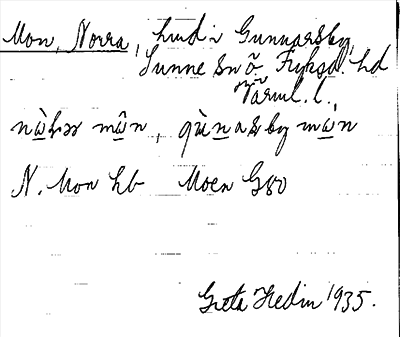 Mon, Norra, hmd i Gunnarsby,
Sunne sn ö. Fryksd. hd
Värml. l.
nòhr môn, gùnasby mòn
N. Mon hb Moen G80
Greta Hedin 1935.